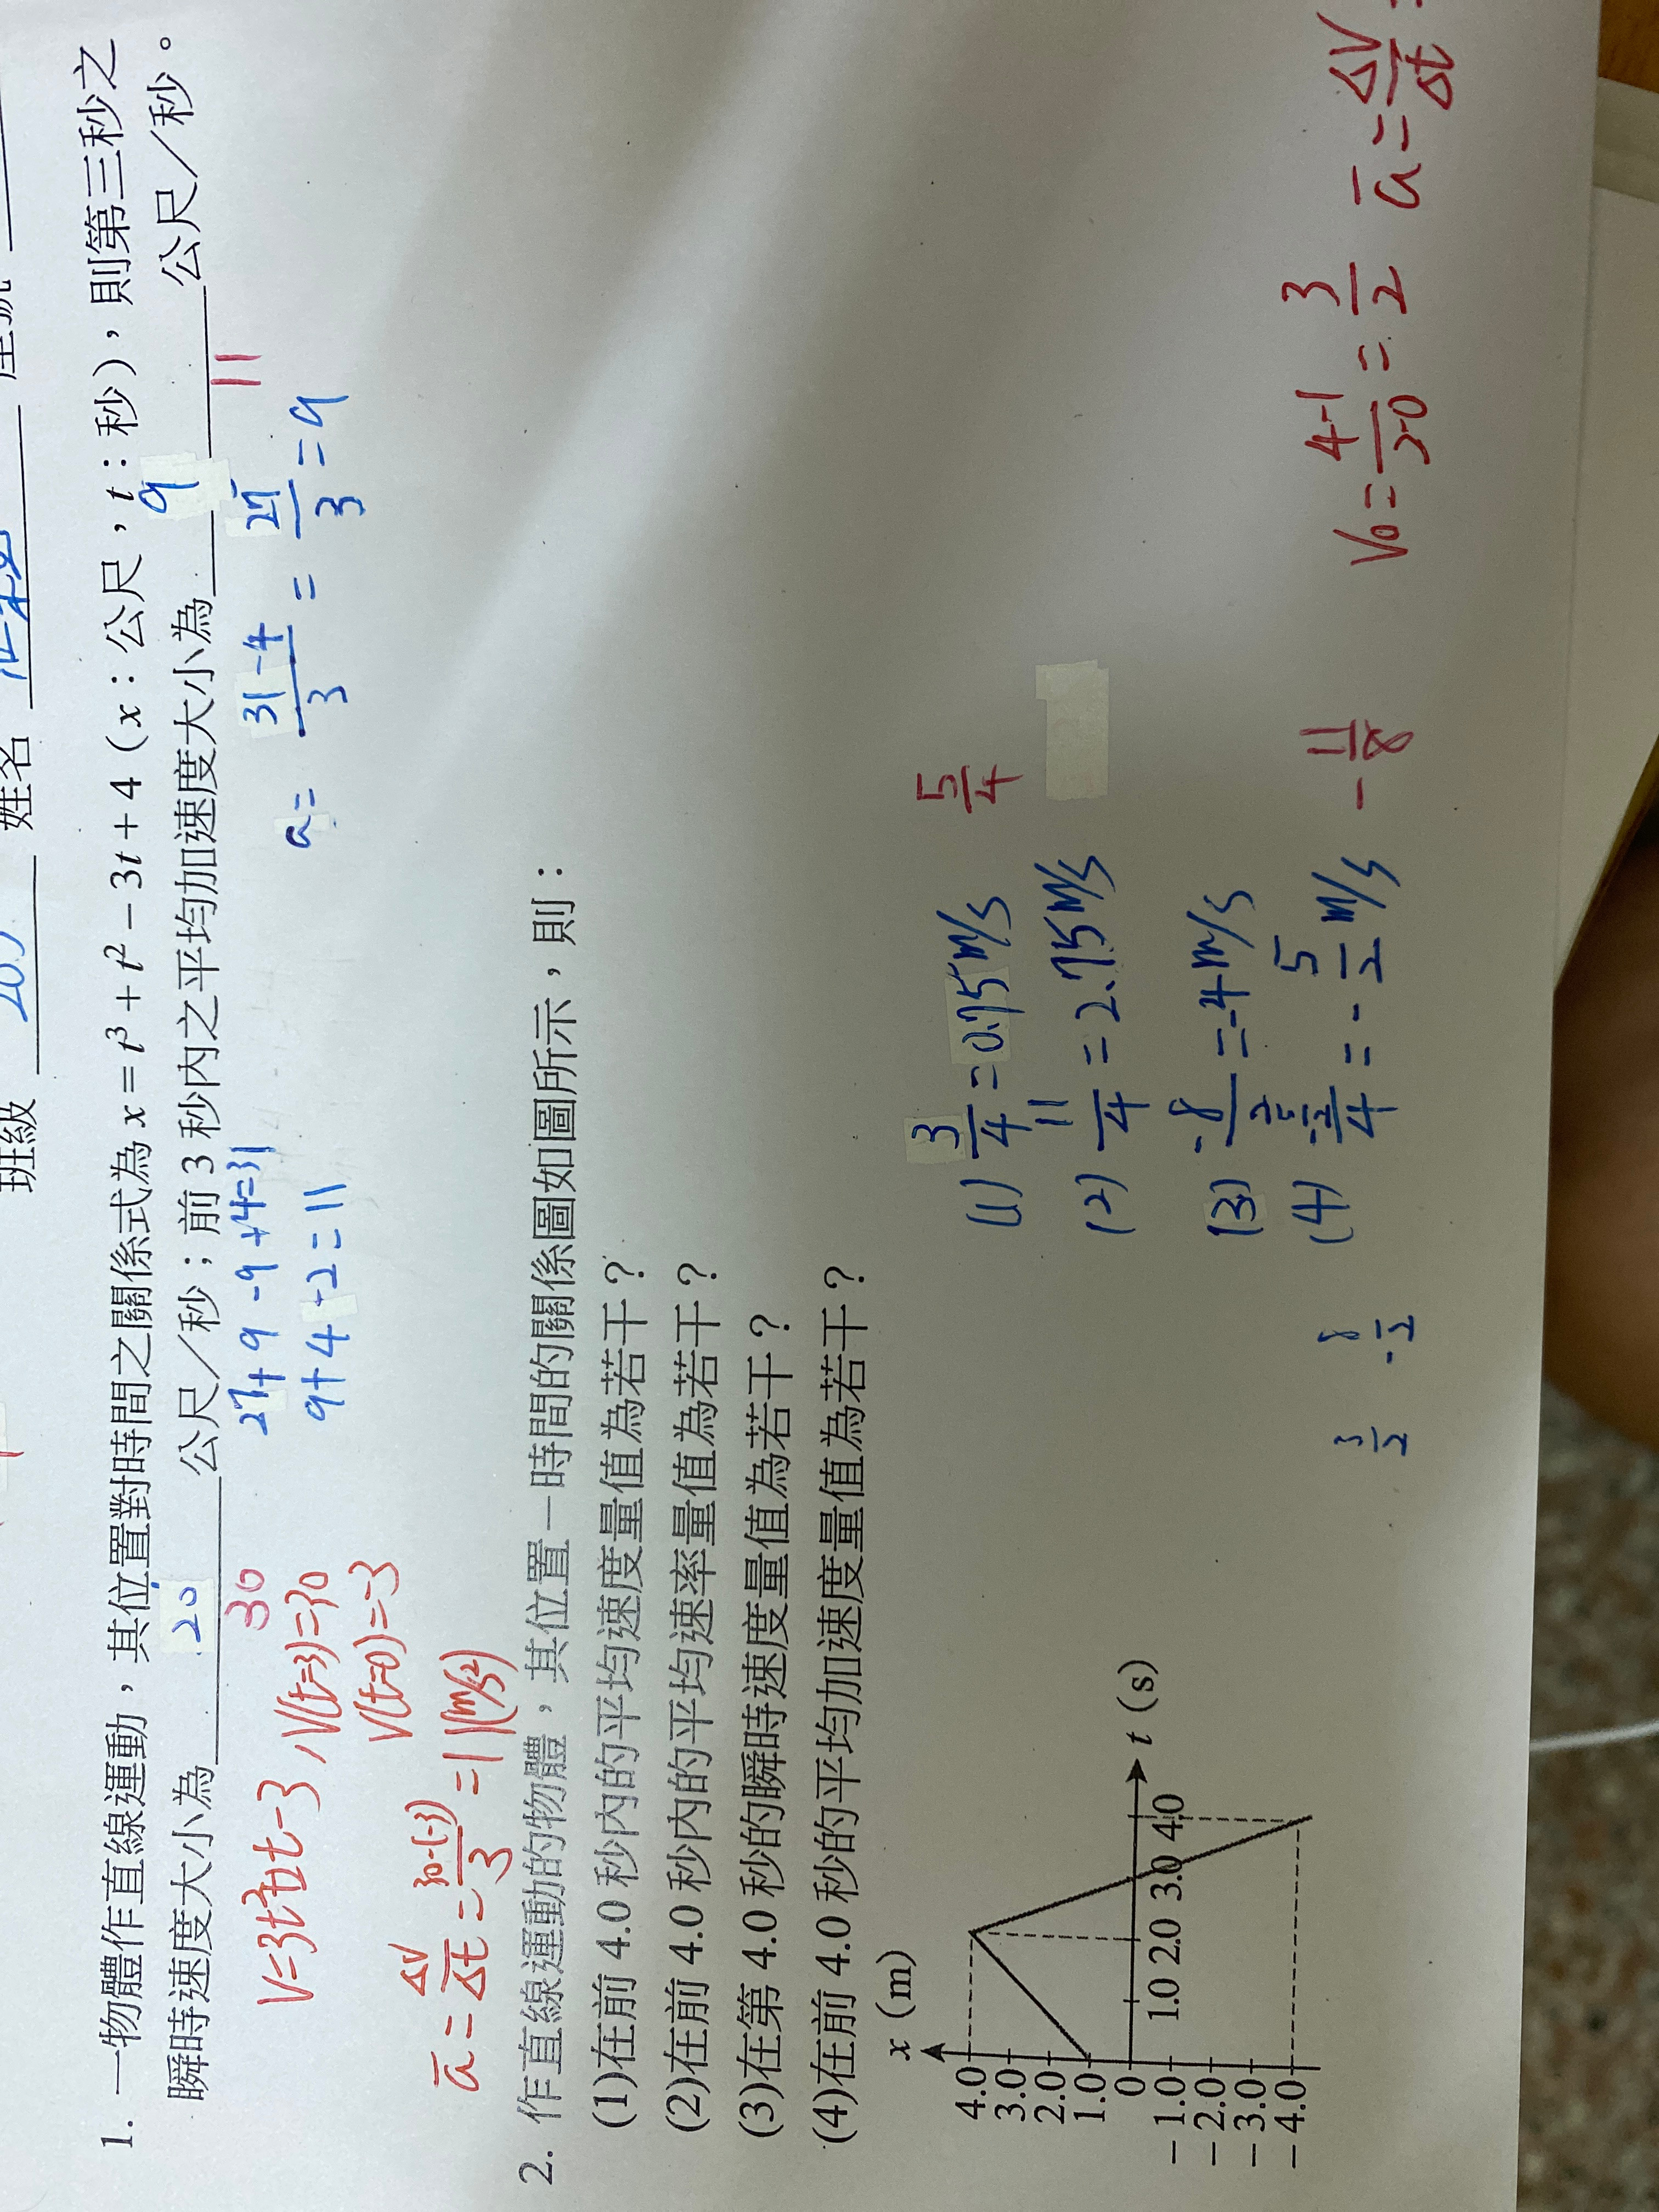 班級 姓名
1. 一物體作直線運動，其位置對時間之關係式為 x = t³ + t² − 3t + 4（x：公尺，t：秒），則第三秒之
瞬時速度大小為 20 公尺／秒；前 3 秒內之平均加速度大小為 9 公尺／秒。
30
11
27+9-9+4=31
9+4-2=11
a= 31-4/3 = 27/3 =9
V(t=3)=30
V(t=0)=-3
ā = ΔV/Δt = 30-(-3)/3 = 11(m/s²)
2. 作直線運動的物體，其位置－時間的關係圖如圖所示，則：
(1)在前 4.0 秒內的平均速度量值為若干？
(2)在前 4.0 秒內的平均速率量值為若干？
(3)在第 4.0 秒的瞬時速度量值為若干？
(4)在前 4.0 秒的平均加速度量值為若干？
x (m)
4.0
3.0
2.0
1.0
0
−1.0
−2.0
−3.0
−4.0
1.0 2.0 3.0 4.0
t (s)
(1) 3/4 =0.75m/s 5/4
(2) 11/4 =2.75m/s
(3) -8/2 =-4m/s
(4) = -5/2 m/s -11/8
3/2 -8/2
V₀= 4-1/2-0 = 3/2 ā= ΔV/Δt